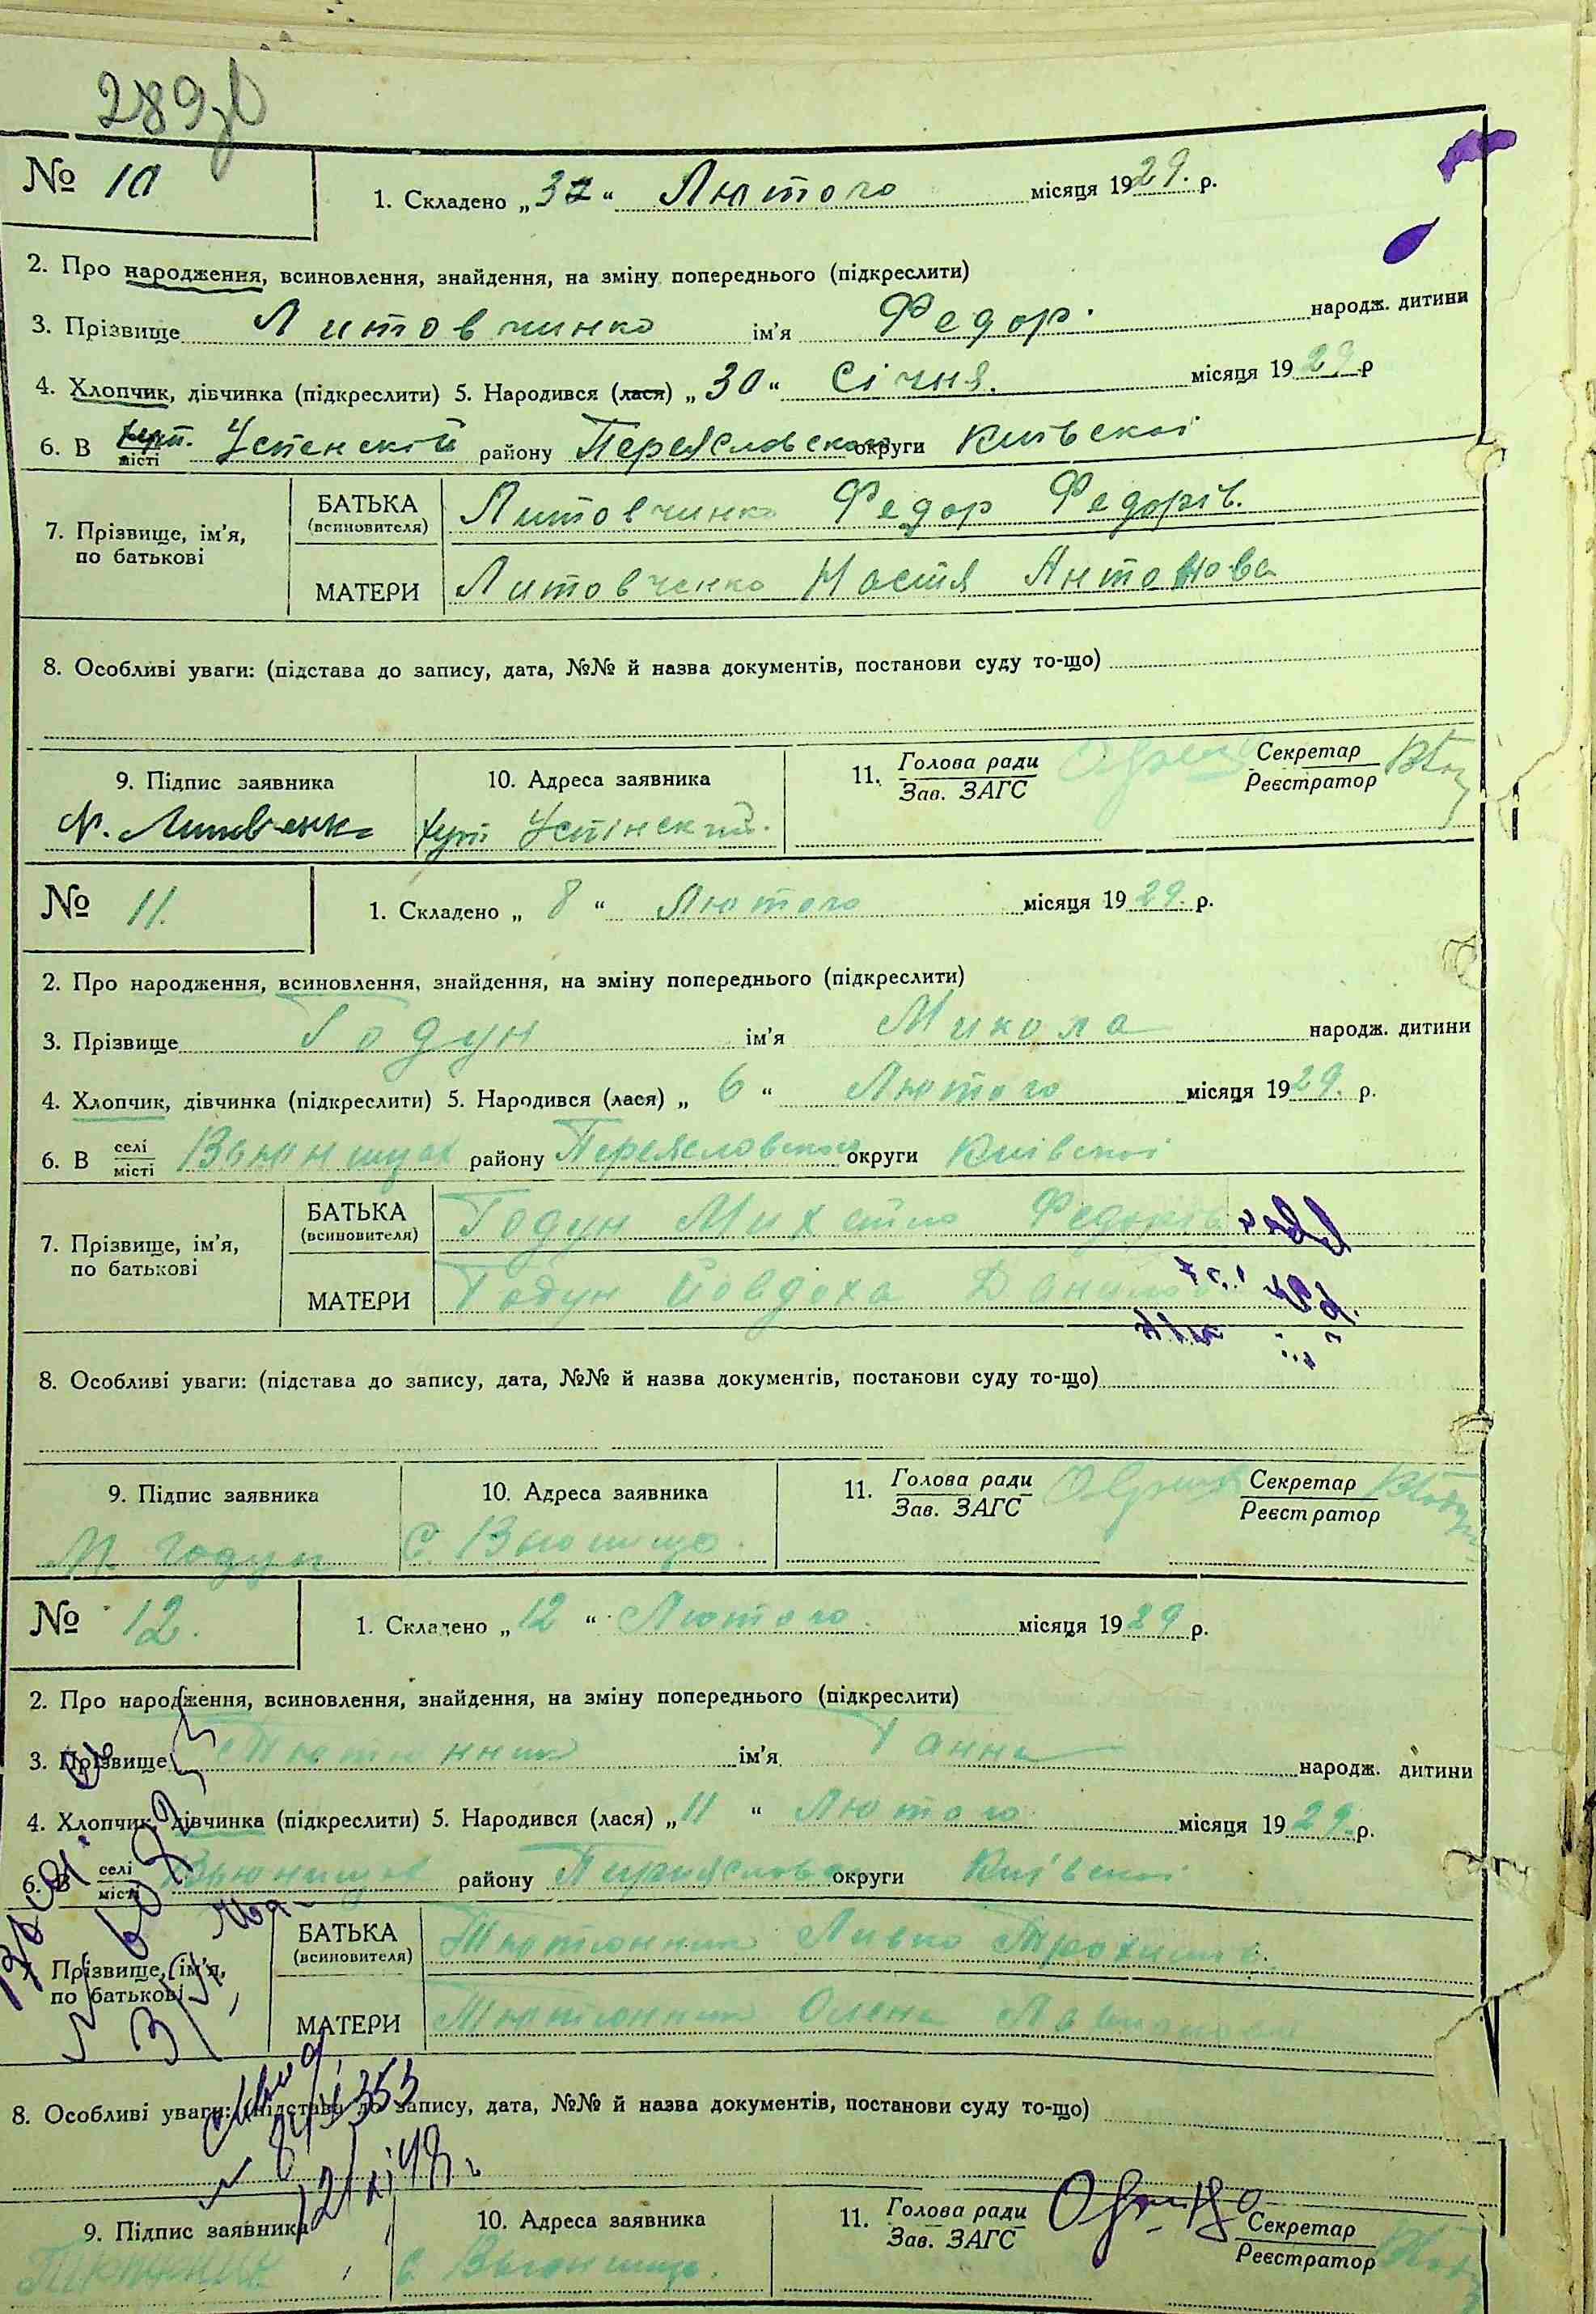 289
№ 10
1. Складено „ “ Лютого місяця 1929. р.
2. Про народження, всиновлення, знайдення, на зміну попереднього (підкреслити)
3. Прізвище Литовчинко ім’я Федор. народж. дитини
4. Хлопчик, дівчинка (підкреслити) 5. Народився (лася) „30“ Січня. місяця 1929 р
6. В місті Успенскій району Переясловської округи Київскої
7. Прізвище, ім’я, по батькові
БАТЬКА (всиновителя) Литовчинко Федор Федорів.
МАТЕРИ Литовченко Настя Антонова
8. Особливі уваги: (підстава до запису, дата, №№ й назва документів, постанови суду то-що)
9. Підпис заявника 10. Адреса заявника 11. Голова ради Зав. ЗАГС Секретар Реєстратор
хут Успінский.
№ 11.
1. Складено „ 8 “ Лютого місяця 1929. р.
2. Про народження, всиновлення, знайдення, на зміну попереднього (підкреслити)
3. Прізвище Годун ім’я Микола народж. дитини
4. Хлопчик, дівчинка (підкреслити) 5. Народився (лася) „ 6 “ Лютого місяця 1929. р.
6. В селі місті району округи Київскої
7. Прізвище, ім’я, по батькові
БАТЬКА (всиновителя) Годун Михайло Федорів
МАТЕРИ Годун Йовдоха
8. Особливі уваги: (підстава до запису, дата, №№ й назва документів, постанови суду то-що)
9. Підпис заявника 10. Адреса заявника 11. Голова ради Зав. ЗАГС Секретар Реєстратор
М. Годун С. Вьюнище.
№ 12.
1. Складено „12 “ Лютого. місяця 1929 р.
2. Про народження, всиновлення, знайдення, на зміну попереднього (підкреслити)
3. Прізвище Тютюнник ім’я Ганна народж. дитини
4. Хлопчик, дівчинка (підкреслити) 5. Народився (лася) „11 “ Лютого місяця 1929. р.
6. В селі місті району округи Київскої
Прізвище, ім’я, по батькові
БАТЬКА (всиновителя) Тютюнник Трохимів.
МАТЕРИ Тютюнник Олена
8. Особливі уваги: (підстава до запису, дата, №№ й назва документів, постанови суду то-що)
9. Підпис заявника 10. Адреса заявника 11. Голова ради Зав. ЗАГС Секретар Реєстратор
с. Вьюнище.